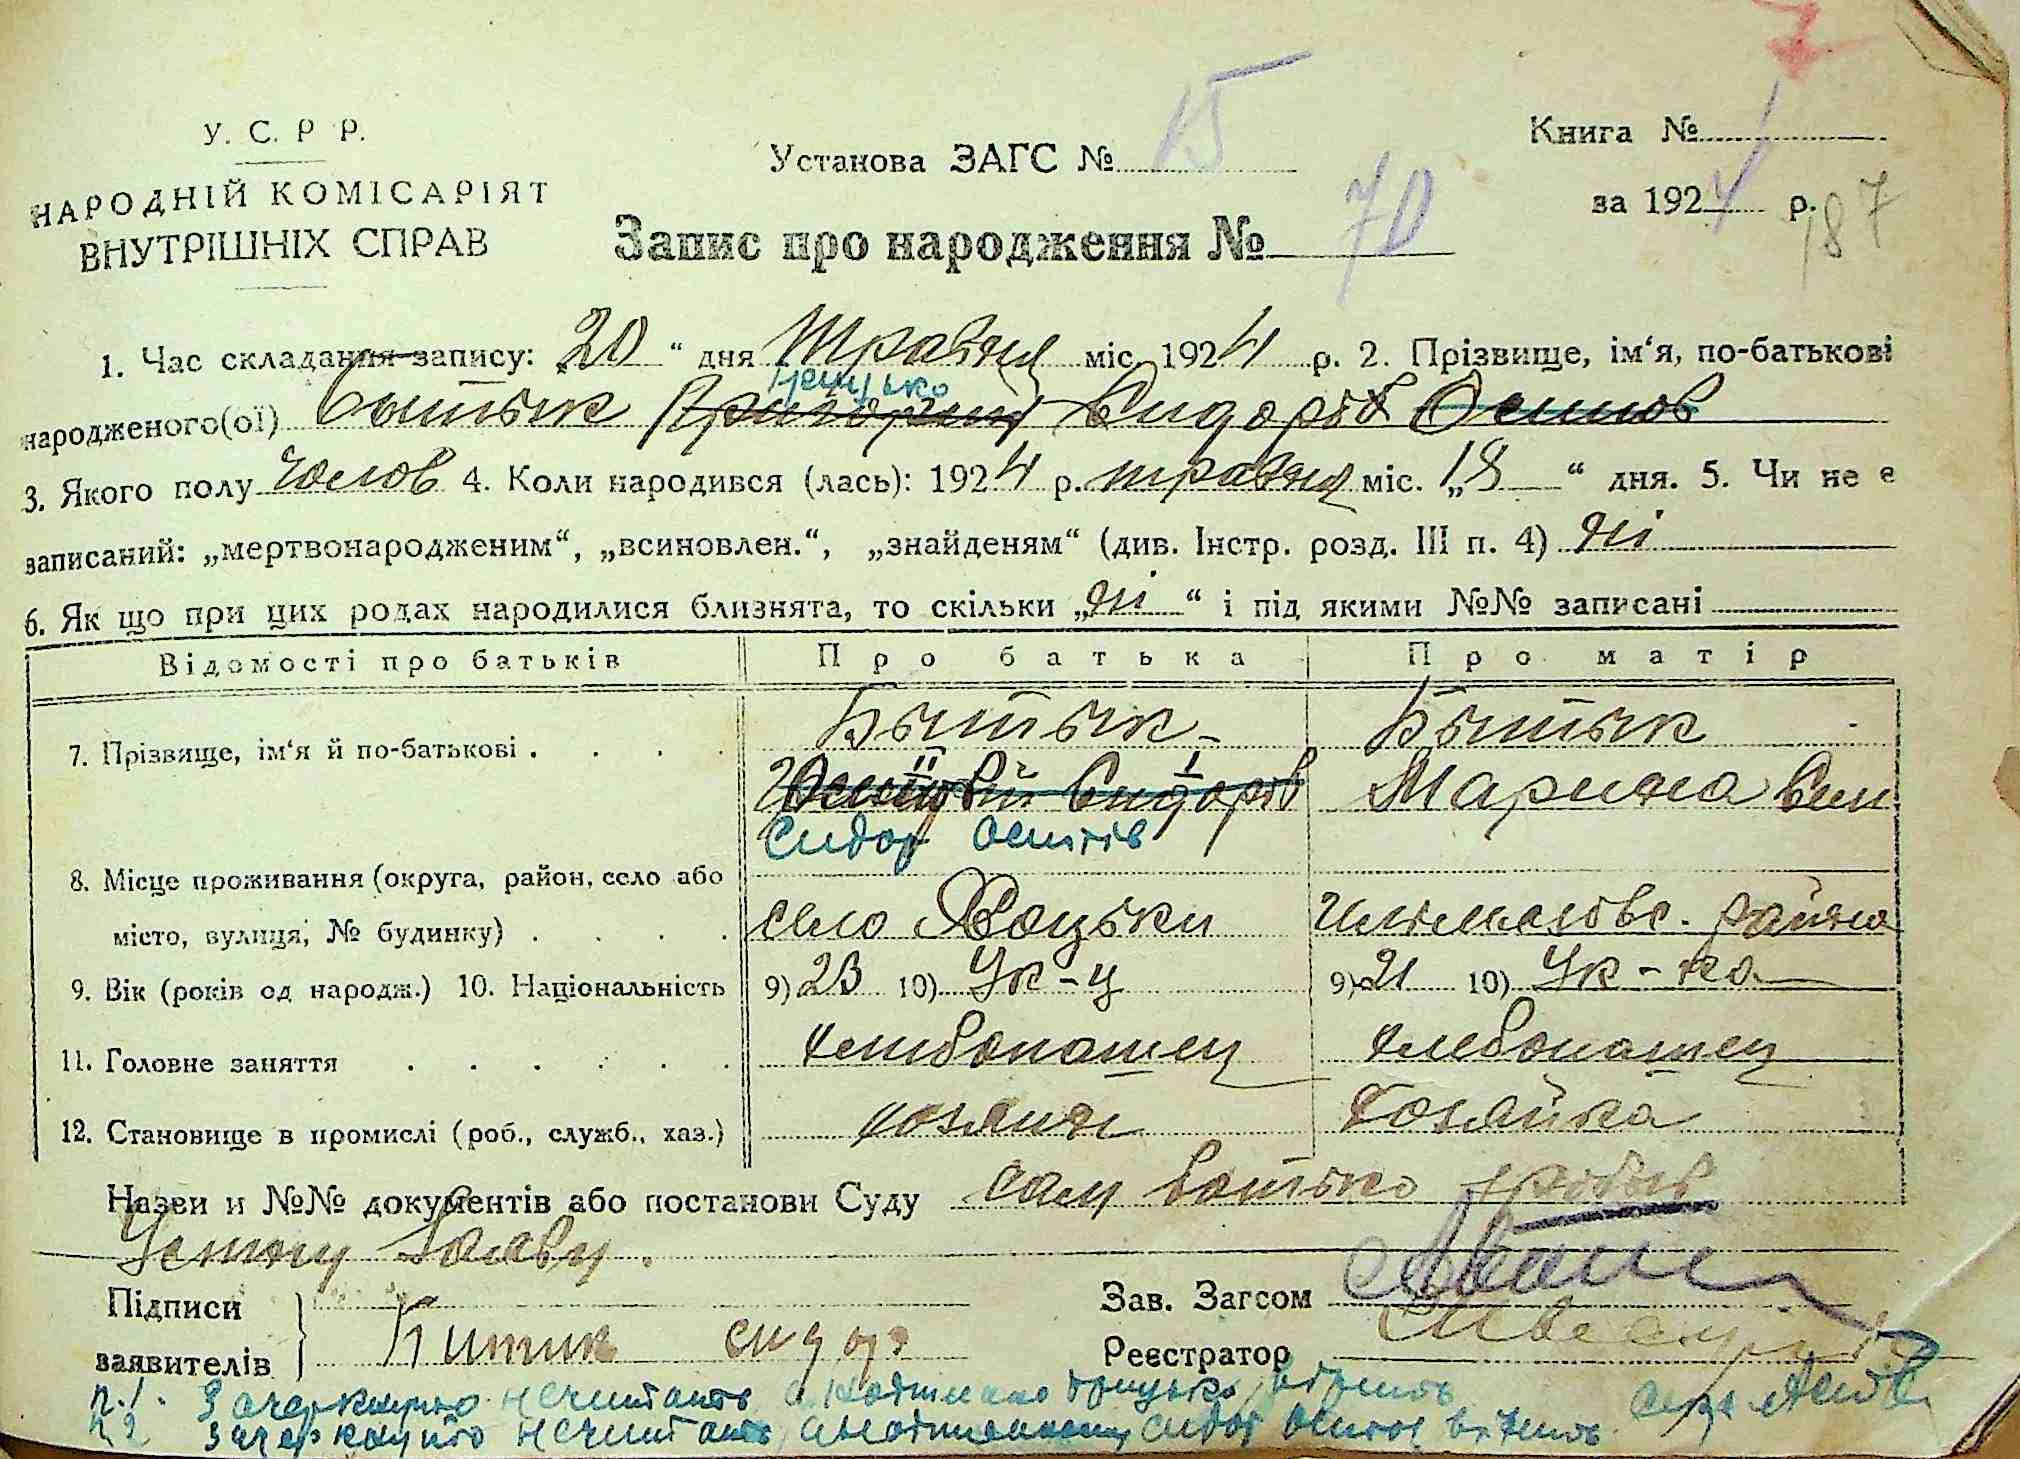 У. С. Р Р.
НАРОДНІЙ КОМІСАРІЯТ
ВНУТРІШНІХ СПРАВ
Установа ЗАГС № 15
Книга № 1
за 1924 р.
187
Запис про народження № 70
1. Час складання запису: 20 “ дня Травня міс. 1924 р. 2. Прізвище, ім‘я, по-батькові
народженого(ої) Бытык Сидорів Осипов
3. Якого полу чолов 4. Коли народився (лась): 1924 р. травня міс. „18“ дня. 5. Чи не є
записаний: „мертвонародженим“, „всиновлен.“, „знайденям“ (див. Інстр. розд. III п. 4) ні
6. Як що при цих родах народилися близнята, то скільки „ні“ і під якими №№ записані
Відомості про батьків Про батька Про матір
7. Прізвище, ім‘я й по-батькові Бытык Бытык
Сидорів Марина
Сидор Осипів
8. Місце проживання (округа, район, село або
місто, вулиця, № будинку) село Хоцьки района
9. Вік (років од народж.) 10. Національність 9) 23 10) Ук-ц 9) 21 10) Ук-ка
11. Головне заняття хлибопашец хлебопашец
12. Становище в промислі (роб., служб., хаз.) хозяин хозяйка
Назви й №№ документів або постанови Суду сам батько зробив
Устну заяву.
Підписи
заявителів
Китик сидор
Зав. Загсом
Реєстратор
п. 1. Зачеркнуто не считать
п 2 зачеркнуто не считать сидор осипов